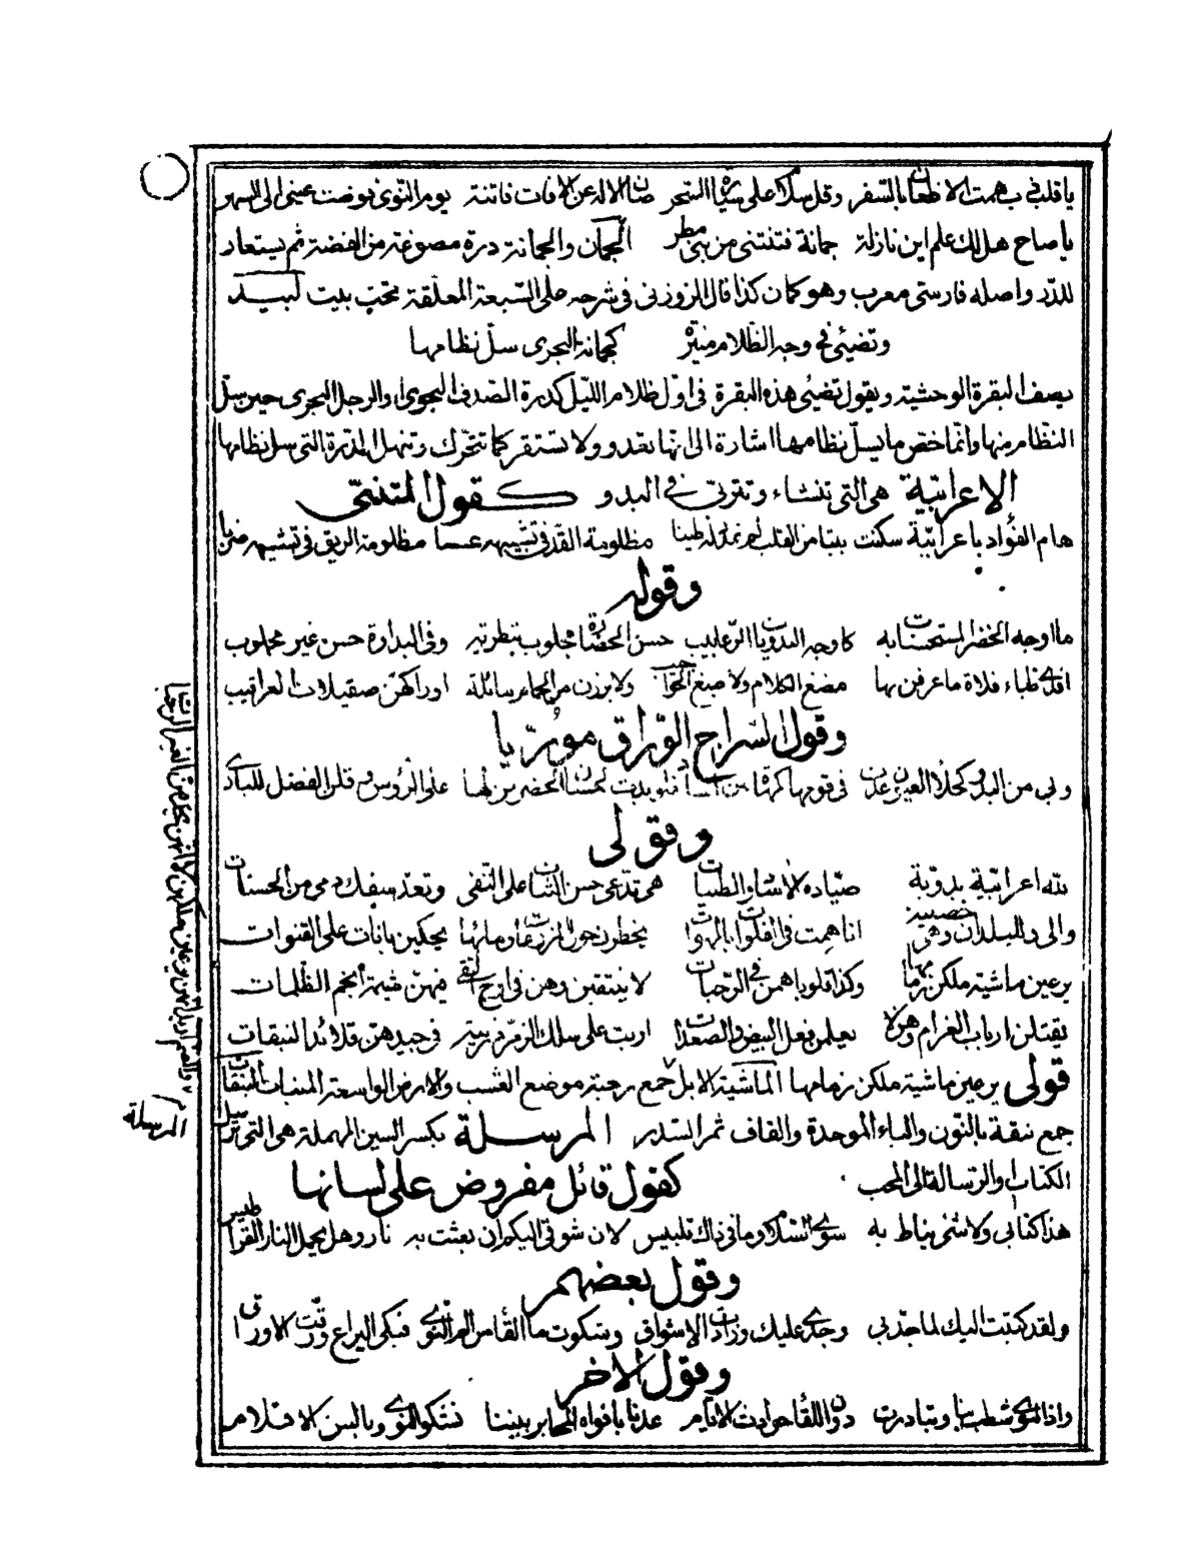 يا قلبي همت الاظعان بالسفر وقل سلاما على سيارة السحر صان الاله عن الافات فاتنة يوم النوى فوضت عيني الى السهر
يا صاح هل لك علم اين نازلة جمانة فتنتني من بني مطر الجمان والجمانة درة مصوغة من الفضة ثم يستعار
للدر واصله فارسي معرب وهو كمان كذا قال الزوزني في شرحه على السبعة المعلقة تحت بيت لبيد
وتضيئ في وجه الظلام منيرة كجمانة البحرى سل نظامها
يصف البقرة الوحشية ويقول تضيئ هذه البقرة في اول ظلام الليل كدرة الصدف البحرى او الرجل البحرى حين سل
النظام منها وانما خص ما يسل نظامها اشارة الى انها تعدو ولا تستقر كما تتحرك وتنهل الدرة التي سل نظامها
الاعرابية هى التى تنشاء وتتربى في البدو كقول المتنبى
هام الفؤاد باعرابية سكنت بيتا من القلب لم تمدد له طنبا مظلومة القد في تشبيهه غصنا مظلومة الريق في تشبيهه ضربا
وقوله
ما اوجه الحضر المستحسنات به كاوجه البدويات الرعابيب حسن الحضارة مجلوب بتطرية وفي البداوة حسن غير مجلوب
افدى ظباء فلاة ما عرفن بها مضغ الكلام ولا صبغ الحواجيب ولا برزن من الحمام مائلة اوراكهن صقيلات العراقيب
وقول السراج الوراق موريا
وبي من البدو كحلاء العيون غدت في قومها كمهاة بين آساد فلو بدت لحسان الحضر قمن لها على الرؤس وقلن الفضل للبادى
وقولى
لله اعرابية بدوية صيادة الاشبال والظبيات هى تدعى حسن الثبات على التقى وتعد سفك دمى من الحسنات
والى د للبلدان وهى خصيبة انا همت في الفلوات بالمهوات يخطون حول المزرعات وما بها يحكين بانات على القنوات
يرعين ماشية ملكن زمامها وكذا قلوبا همن في الرحبات لا ينتقبن وهن في اوج التقى فهن شيمة انجم الظلمات
يقتلن ارباب الغرام وهن لا يعلمن فعل البيض والصعدات اربت على سلك الزمرد زينة في جيدهن قلائد النبقات
قولى يرعين ماشية ملكن زمامها الماشية الابل جمع رحبة موضع العشب والارض الواسعة المنبات النبقات
جمع نبقة بالنون والباء الموحدة والقاف ثمر السدر المرسلة بكسر السين المهملة هى التى ترسل
الكتاب او الرسالة الى المحب كقول قائل مفروض على لسانها
هذا كتابى ولا شئ يناط به سوى السلام وما في ذاك تلبيس لان شوقى اليكم ان بعثت به نار وهل يحمل النار القراطيس
وقول بعضهم
ولقد كتبت اليك لما جد بى وجدى عليك وزادت الاشواق وشكوت ما القاه من الم النوى فبكى اليراع ورقت الاوراق
وقول الاخر
واذا النوى شطت بنا وتبادرت دون اللقا حوادث الايام عدنا بافواه المحابر بيننا نشكو النوى وبالسن الاقلام
المرسلة